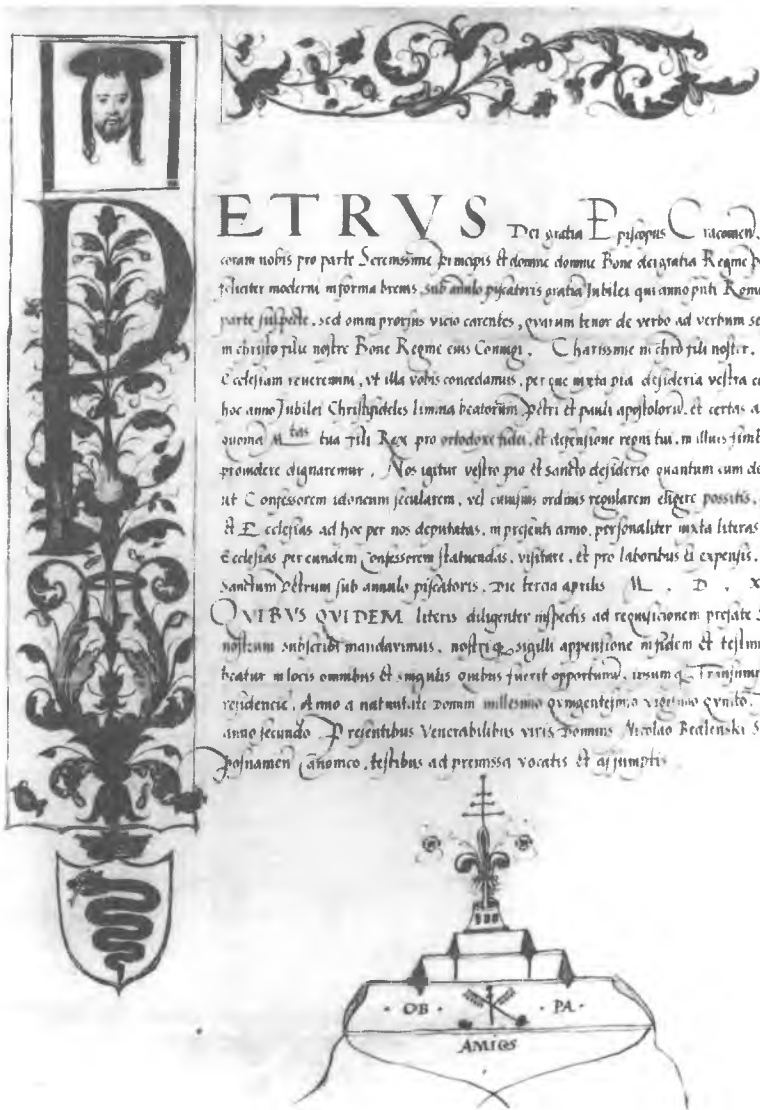 PETRVS Dei gratia Episcopus Cracovien
coram nobis pro parte Serenissime principis et domine domine Bone dei gratia Regine
feliciter moderni in forma brevis, sub anulo piscatoris gratia Jubilei qui anno
parte suspecte, sed omni prorsus vicio carentes, quarum tenor de verbo ad verbum
in christo filie nostre Bone Regine eius Coniugi. Charissime in chro fili noster.
Ecclesiam reveremini, vt illa vobis concedamus, per que iuxta pia desideria vestra
hoc anno Jubilei Christifideles limina beatorum petri et pauli apostolorum, et certas
quoniam M tas tua fili Rex pro orthodoxe fidei, et defensione regni tui, in illius
promovere dignaremur. Nos igitur vestro pio et sancto desiderio quantum cum
ut Confessorem idoneum secularem, vel cuiusvis ordinis regularem eligere possitis,
et Ecclesias ad hoc per nos deputatas, in presenti anno, personaliter iuxta literas
Ecclesias per eundem Confessorem statuendas, visitare, et pro laboribus et expensis,
Sanctum Petrum sub annulo piscatoris, Die tercia aprilis M. D. X
QVIBVS QVIDEM literis diligenter inspectis ad requisicionem prefate
nostrum subscribi mandavimus, nostriq sigilli appensione in fidem et
beatur in locis omnibus et singulis quibus fuerit opportunum, ipsumq
residencie, Anno a nativitate Domini millesimo quingentesimo vigesimo qvinto.
anno secundo Presentibus Venerabilibus viris Dominis Nicolao Bedlenski
posnamen Canonico, testibus ad premissa vocatis et assumptis
· OB · · PA ·
AMICS